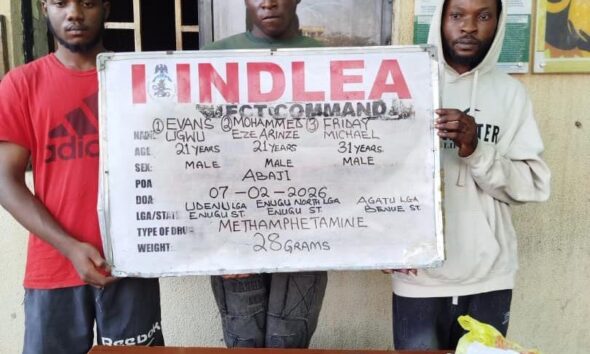 NDLEA
FCT COMMAND
① EVANS ② MOHAMMED ③ FRIDAY
NAME: UGWU EZE ARINZE MICHAEL
AGE: 21 YEARS 21 YEARS 31 YEARS
SEX: MALE MALE MALE
POA ABAJI
DOA: 07-02-2026
LGA/STATE UDENU LGA ENUGU NORTH LGA AGATU LGA
ENUGU ST. ENUGU ST. BENUE ST.
TYPE OF DRUG METHAMPHETAMINE
WEIGHT: 28 GRAMS
adidas
Reebok